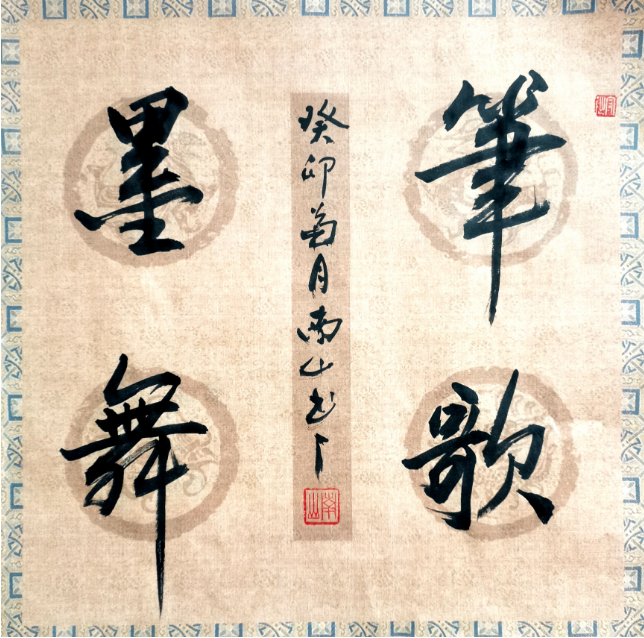 筆歌
墨舞
癸卯菊月南山書
南山